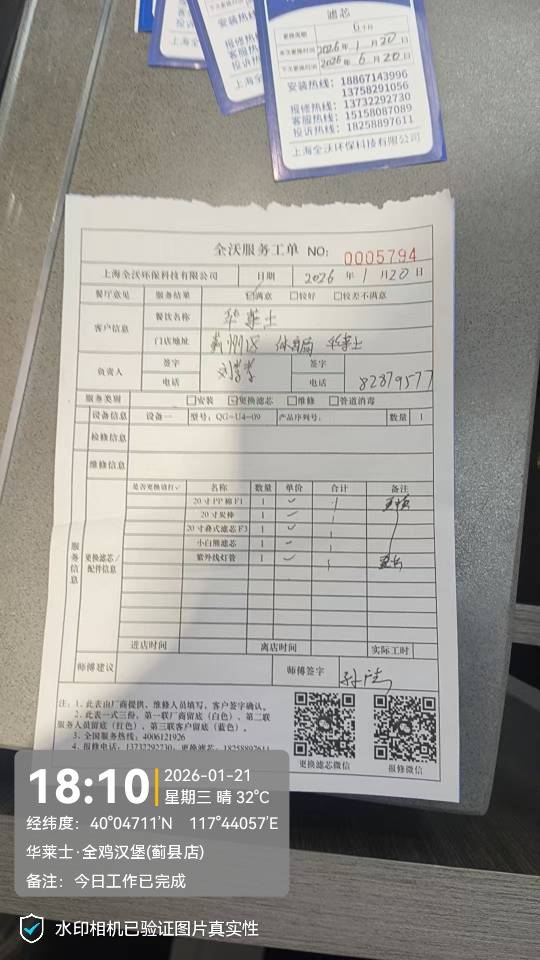 滤芯
更换周期 6个月
本次更换时间 2026年1月20日
下次更换时间 2026年6月20日
安装热线：18867143996
13758291056
报修热线：13732292730
客服热线：15158087089
投诉热线：18258897611
上海全沃环保科技有限公司
全沃服务工单 NO: 0005794
上海全沃环保科技有限公司 日期 2026年1月20日
餐厅意见 服务结果 ☑满意 □较好 □较差不满意
客户信息 餐饮名称 华莱士
门店地址 蓟州区 体育局 华莱士
负责人 签字 签字
电话 电话 82879577
服务类别 □安装 ☑更换滤芯 □维修 □管道消毒
设备信息 设备一 型号：QG-U4-09 产品序列号： 数量 1
检修信息
维修信息
服务信息
更换滤芯/配件信息
是否更换请打√ 名称 数量 单价 合计 备注
20寸PP棉F1 1
20寸炭棒 1
20寸叠式滤芯F3 1
小白熊滤芯 1
紫外线灯管 1
进店时间 离店时间 实际工时
师傅建议 师傅签字
注：1、此表由厂商提供、维修人员填写，客户签字确认。
2、此表一式三份，第一联厂商留底（白色），第二联
服务人员留底（红色），第三联客户留底（蓝色）。
3、全国服务热线：4006121926
4、报修电话：13732292730，更换滤芯：18258897611
更换滤芯微信 报修微信
18:10
2026-01-21
星期三 晴 32℃
经纬度：40°04711′N 117°44057′E
华莱士·全鸡汉堡(蓟县店)
备注：今日工作已完成
水印相机已验证图片真实性